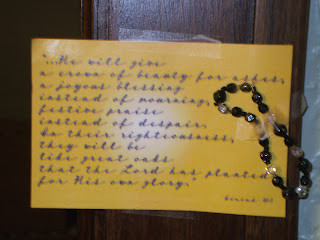 "...He will give
a crown of beauty for ashes,
a joyous blessing
instead of mourning,
festive praise
instead of despair.
In their righteousness,
they will be
like great oaks
that the Lord has planted
for His own glory."